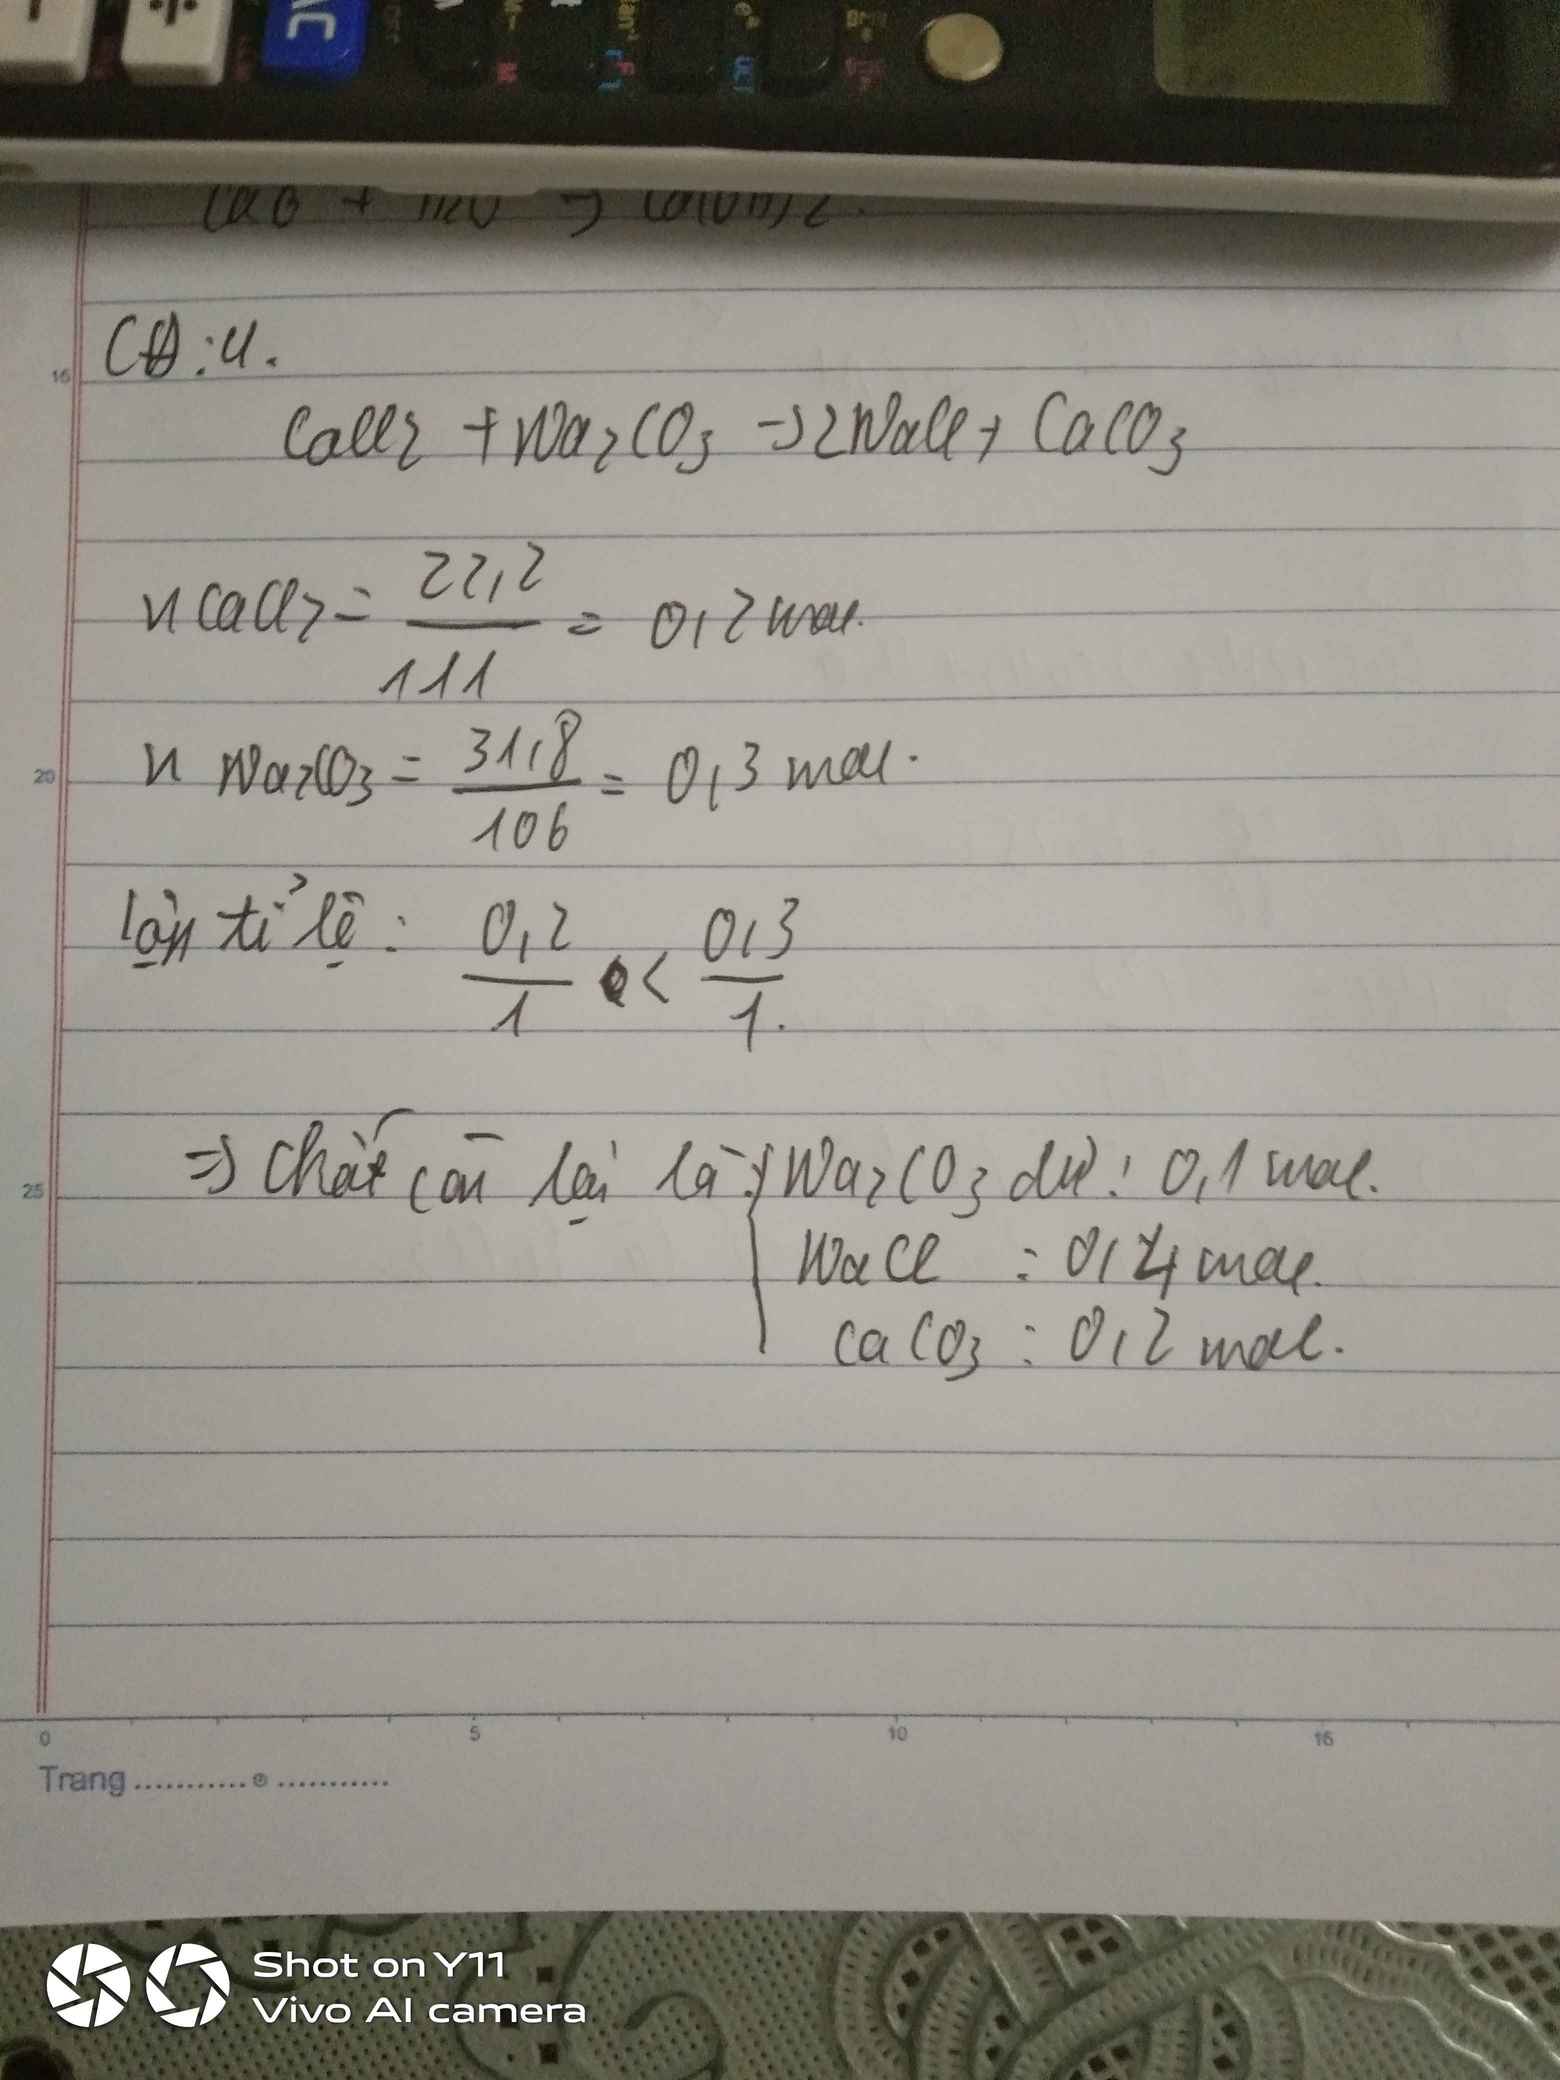 CaO + H2O → Ca(OH)2.
Câu:4.
CaCl2 + Na2CO3 → 2NaCl + CaCO3
n CaCl2 = 22,2 / 111 = 0,2 mol.
n Na2CO3 = 31,8 / 106 = 0,3 mol.
tỉ lệ: 0,2 / 1 < 0,3 / 1.
⇒ Chất còn lại là: { Na2CO3 dư: 0,1 mol.
NaCl : 0,4 mol.
CaCO3 : 0,2 mol.
16
20
25
0 5 10 15
Trang
Shot on Y11
Vivo AI camera